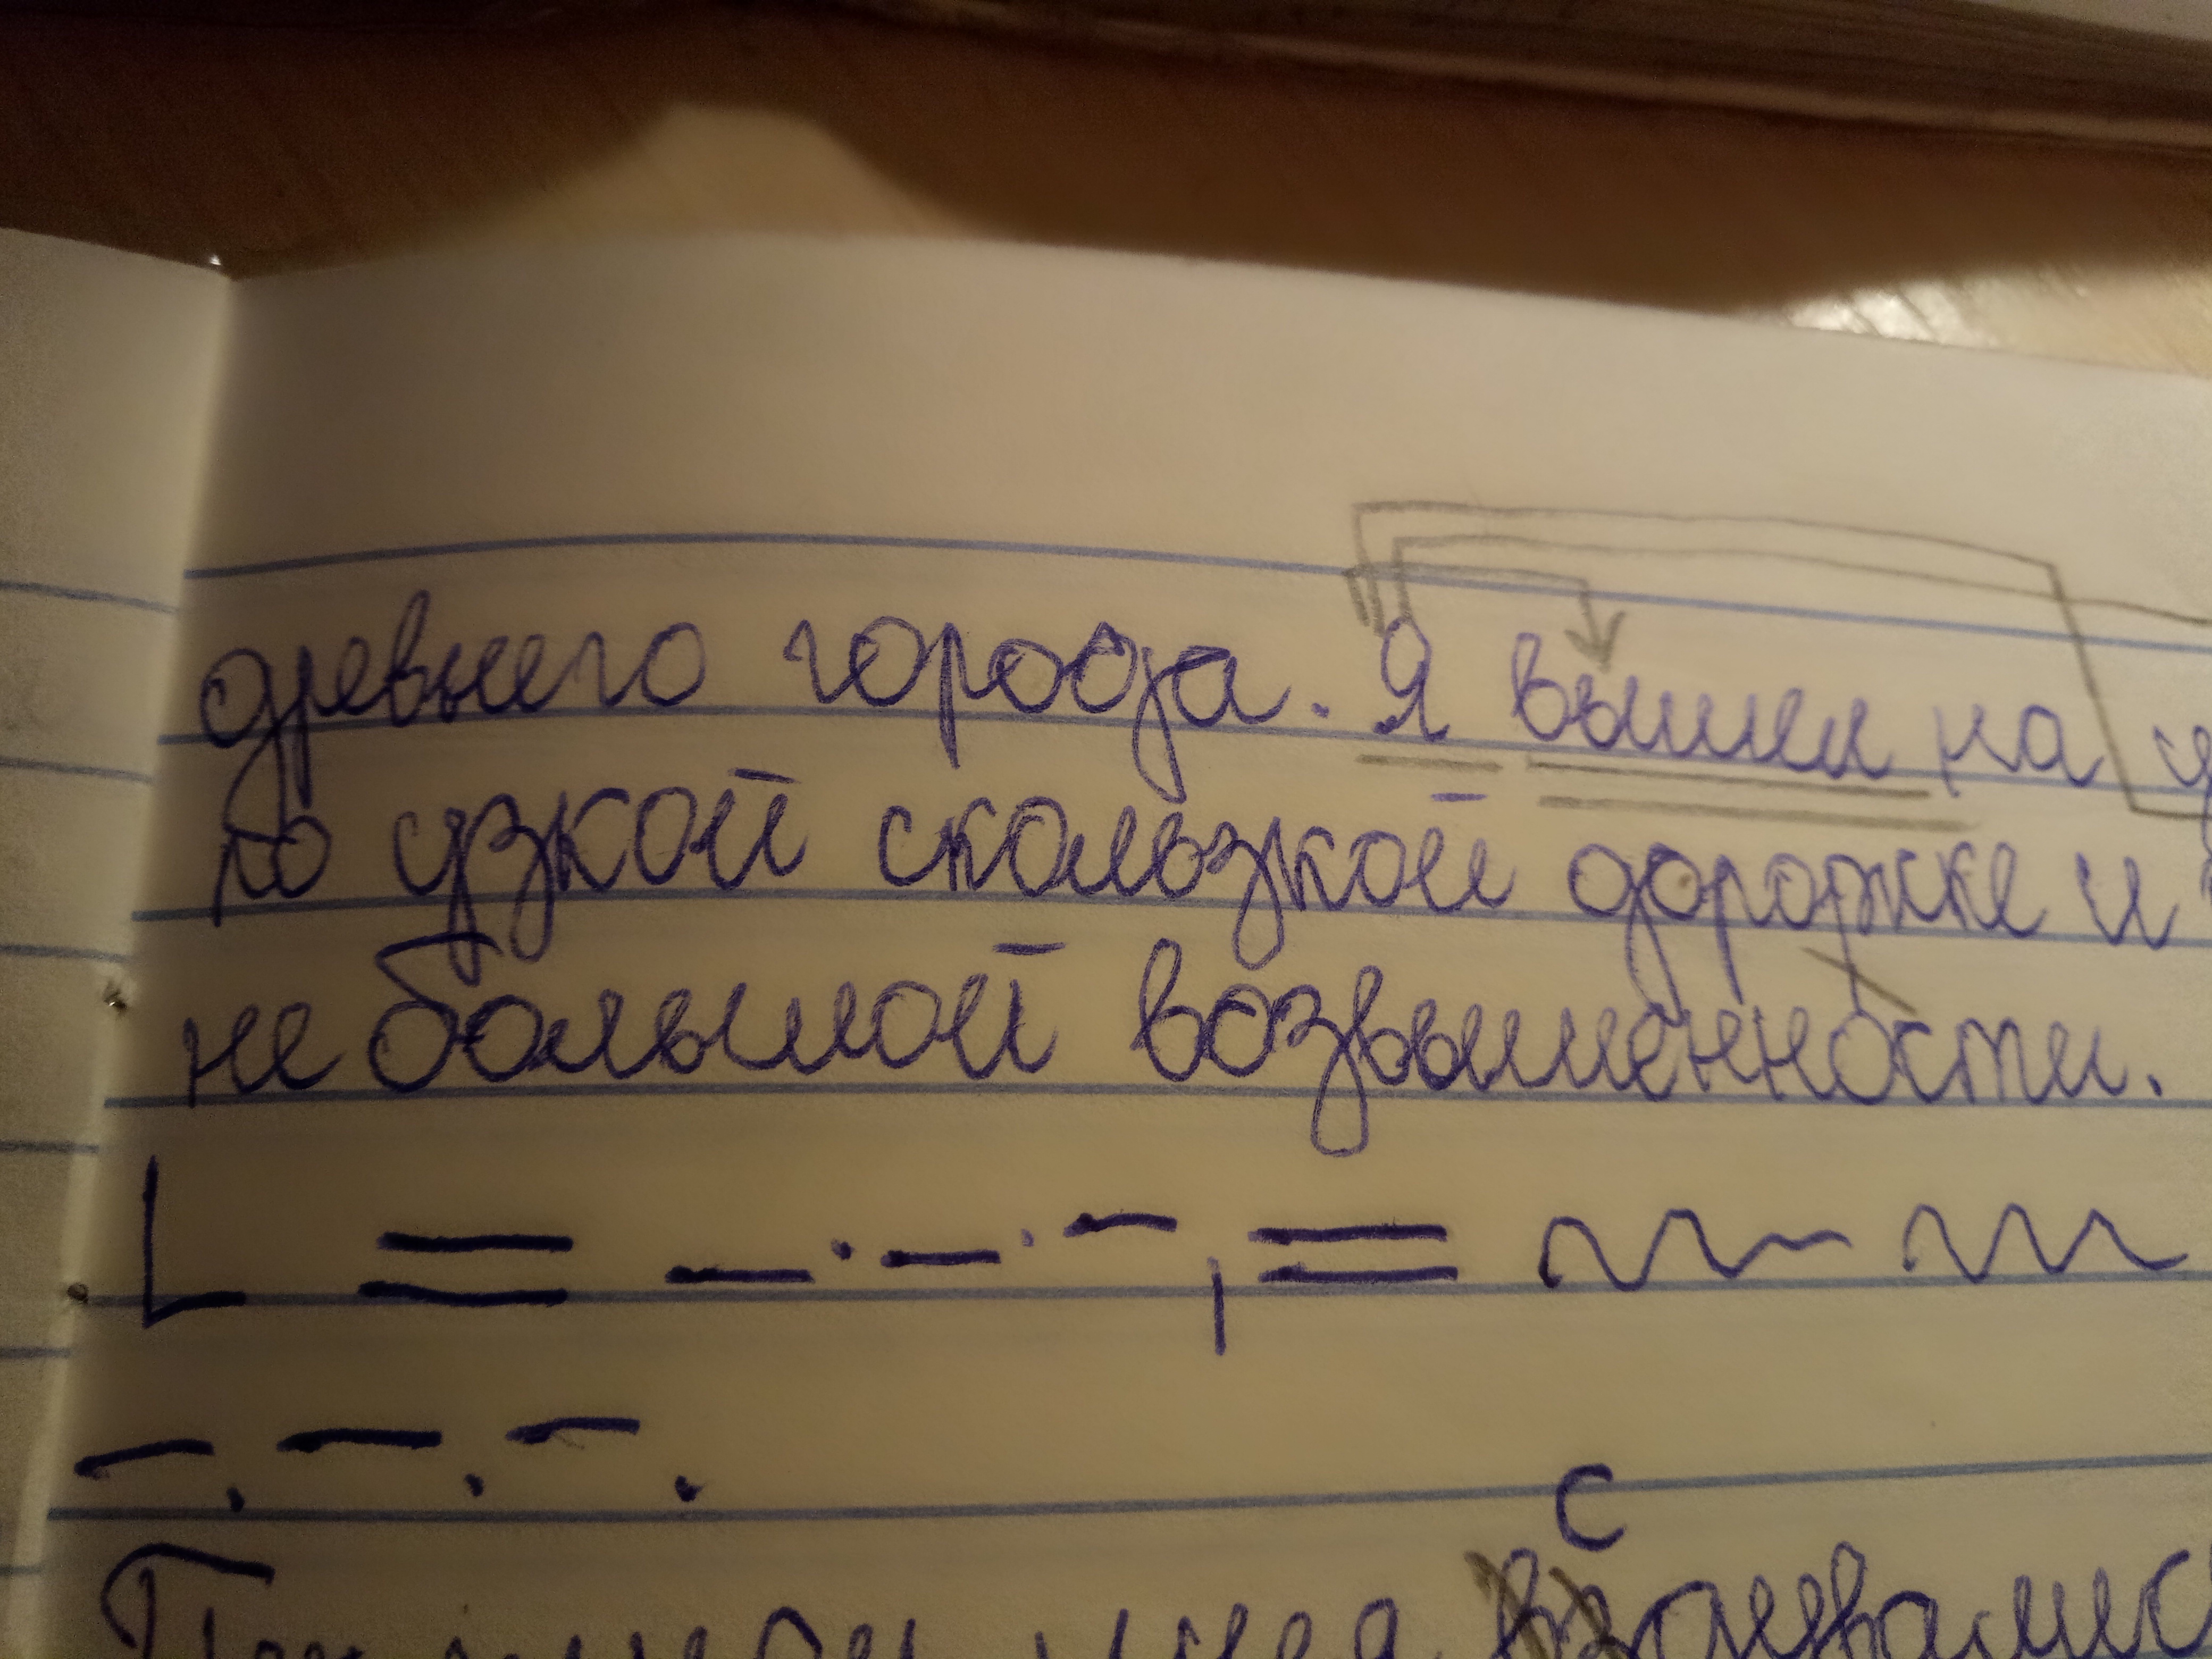 древнего города. Я вышел на
по узкой скользкой дорожке и
небольшой возвышенности.
с